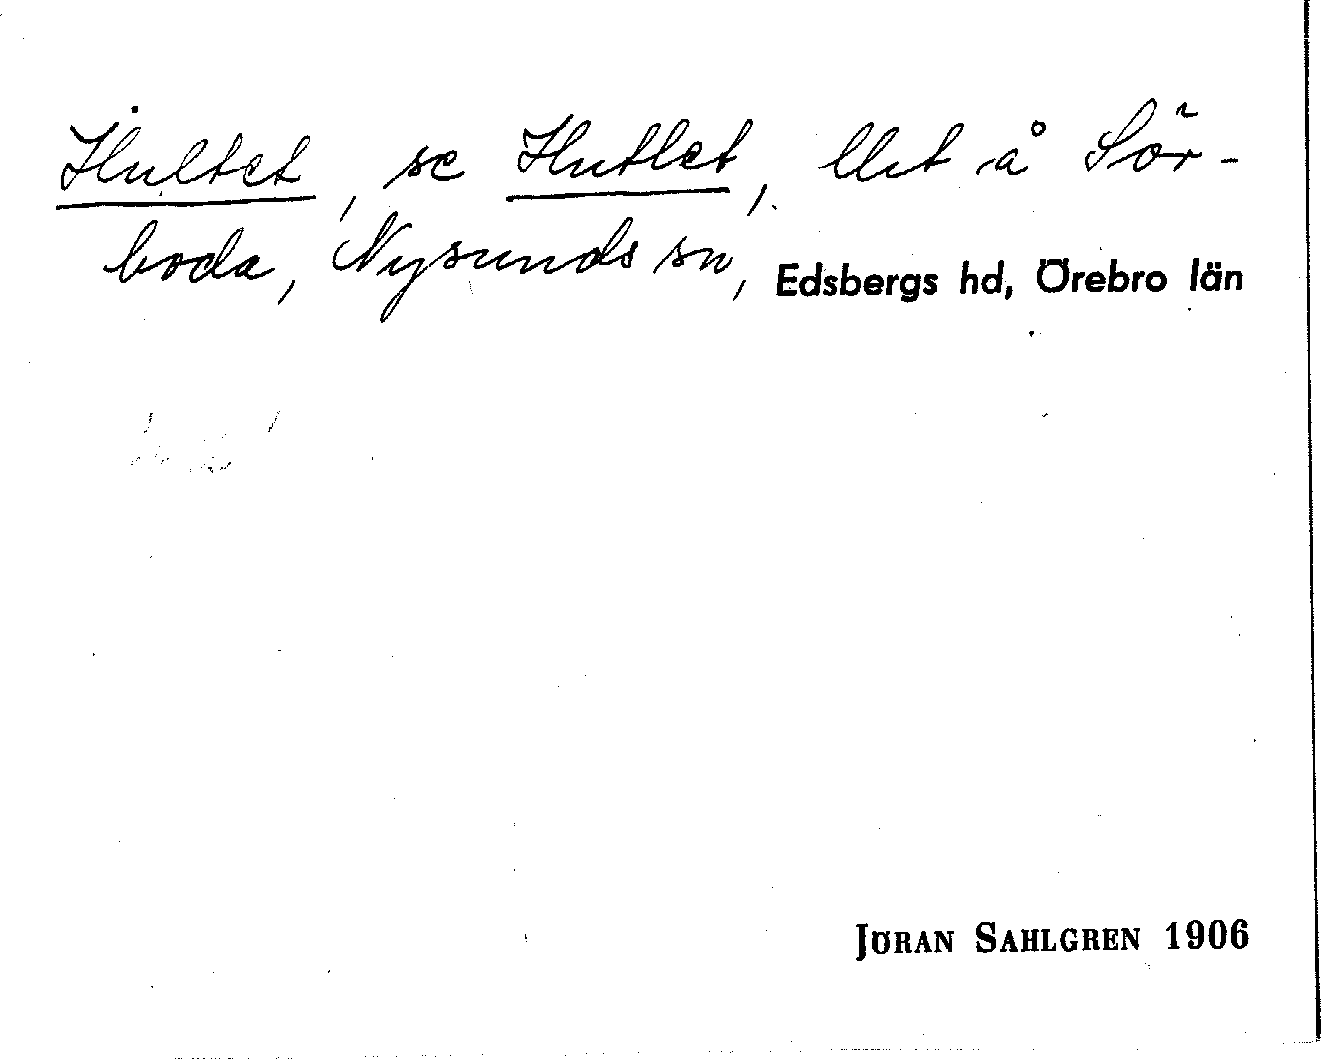 Hultet, se Hutlet, llet å Sör-
boda, Nysunds sn, Edsbergs hd, Örebro län
JÖRAN SAHLGREN 1906